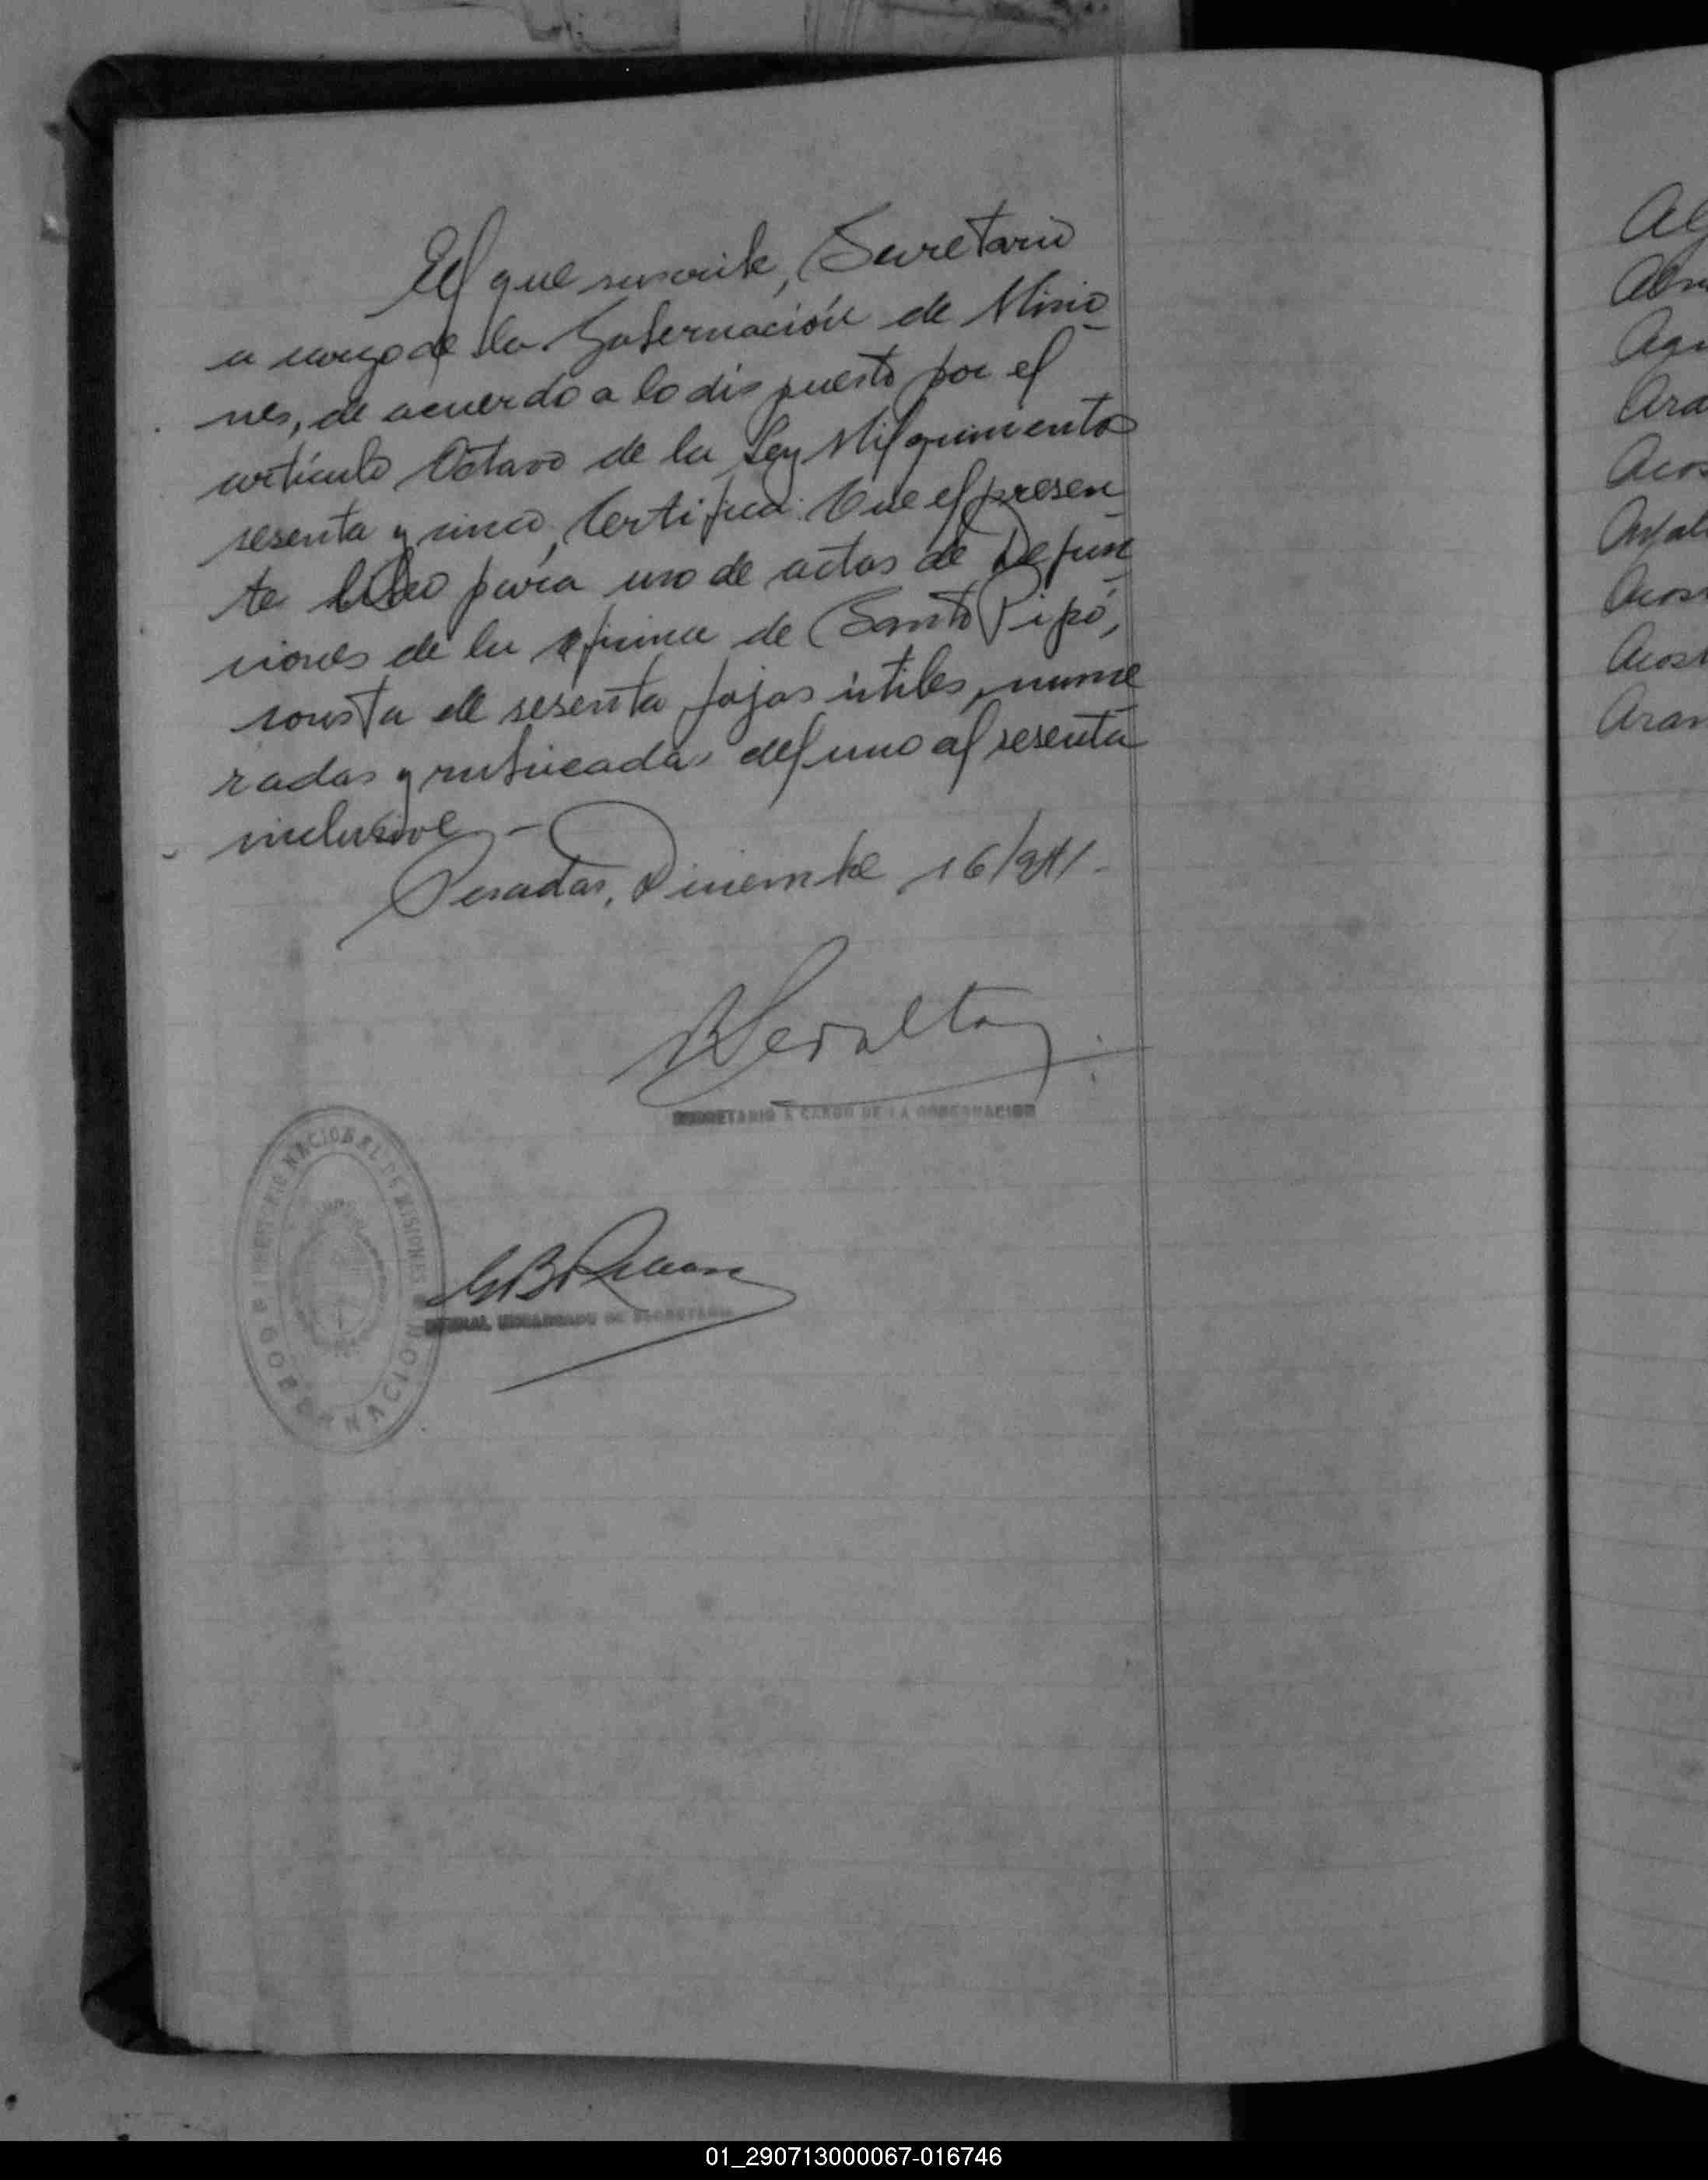 El que suscribe, Secretario
a cargo de la Gobernación de Misio_
nes, de acuerdo a lo dispuesto por el
artículo Octavo de la Ley Mil quinientos
sesenta y cinco, Certifica: Que el presen_
te libro para uso de actas de Defun_
ciones de la oficina de Santo Pipó,
consta de sesenta fojas útiles, nume_
radas y rubricadas del uno al sesenta
inclusive. -
Posadas, Diciembre 16/941.-
Peralta
SECRETARIO A CARGO DE LA GOBERNACION
TERRITORIO NACIONAL DE MISIONES
GOBERNACION
OFICIAL ENCARGADO DE SECRETARIA
Al
Aran
01_290713000067-016746